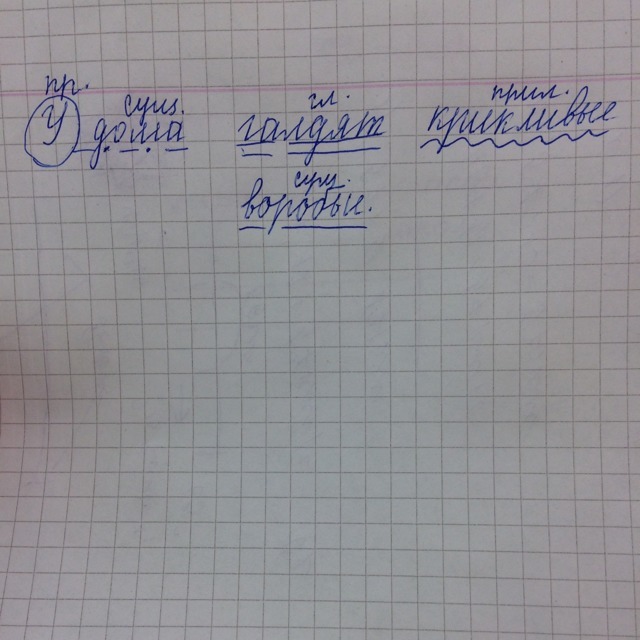 пр. сущ. гл. прил.
У дома галдят крикливые
сущ.
воробьи.